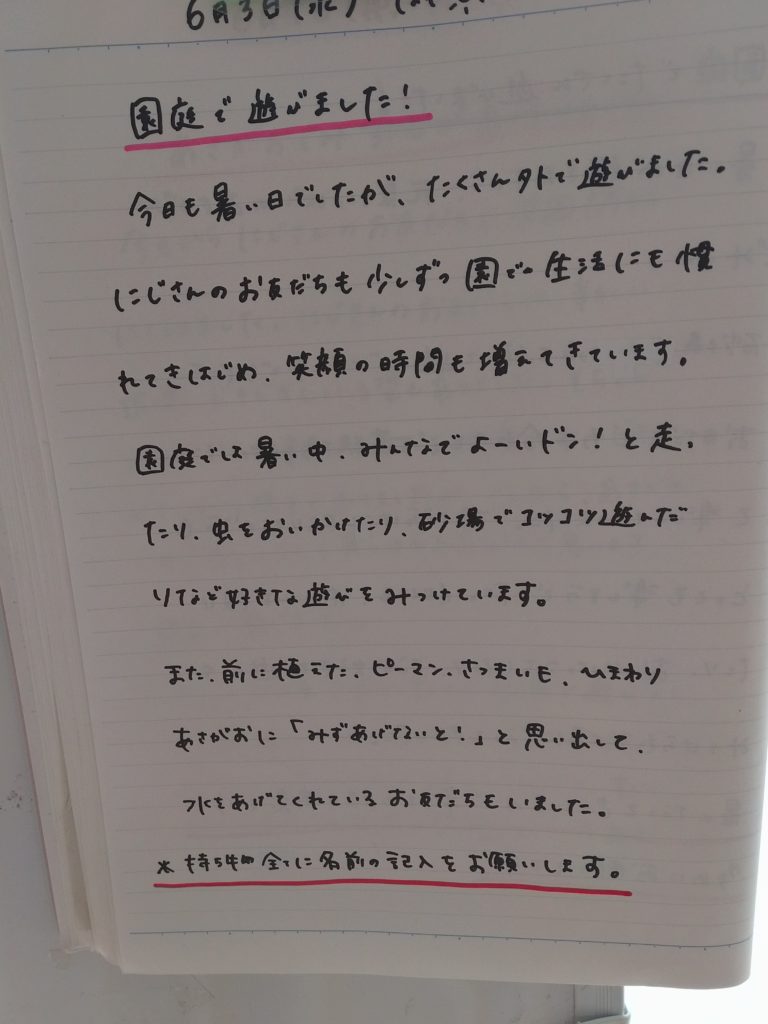 6月3日(水)
園庭で遊びました！
今日も暑い日でしたが、たくさん外で遊びました。
にじさんのお友だちも少しずつ園での生活にも慣
れてきはじめ、笑顔の時間も増えてきています。
園庭では暑い中、みんなでよーいドン！と走っ
たり、虫をおいかけたり、砂場でコツコツ遊んだ
りなど好きな遊びをみつけています。
また、前に植えた、ピーマン、さつまいも、ひまわり
あさがおに「みずあげないと！」と思い出して、
水をあげてくれているお友だちもいました。
※持ち物全てに名前の記入をお願いします。